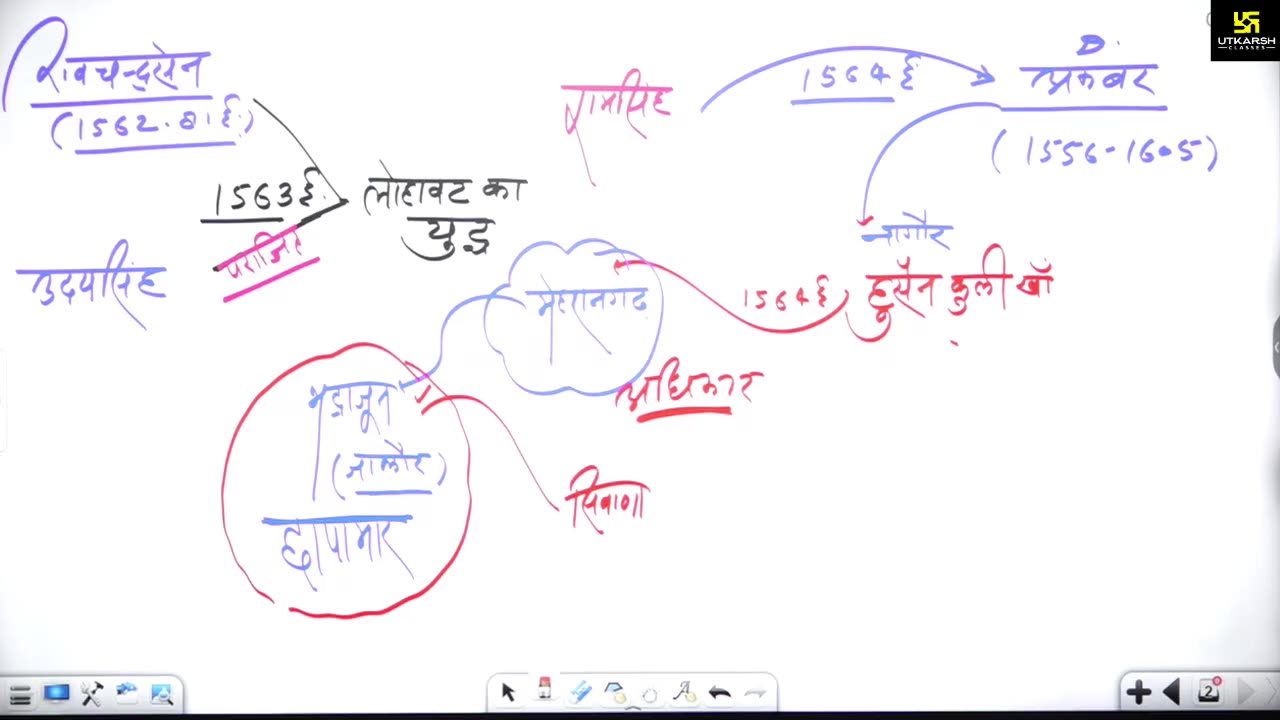 UTKARSH
CLASSES
रावचन्द्रसेन
(1562-81 ई.)
रामसिंह
1564 ई
अकबर
(1556-1605)
1563 ई.
लोहावट का
युद्ध
पराजित
उदयसिंह
नागौर
हुसैन कुली खाँ
1564 ई
मेहरानगढ
अधिकार
भद्राजून
(जालौर)
छापामार
सिवाणा
2